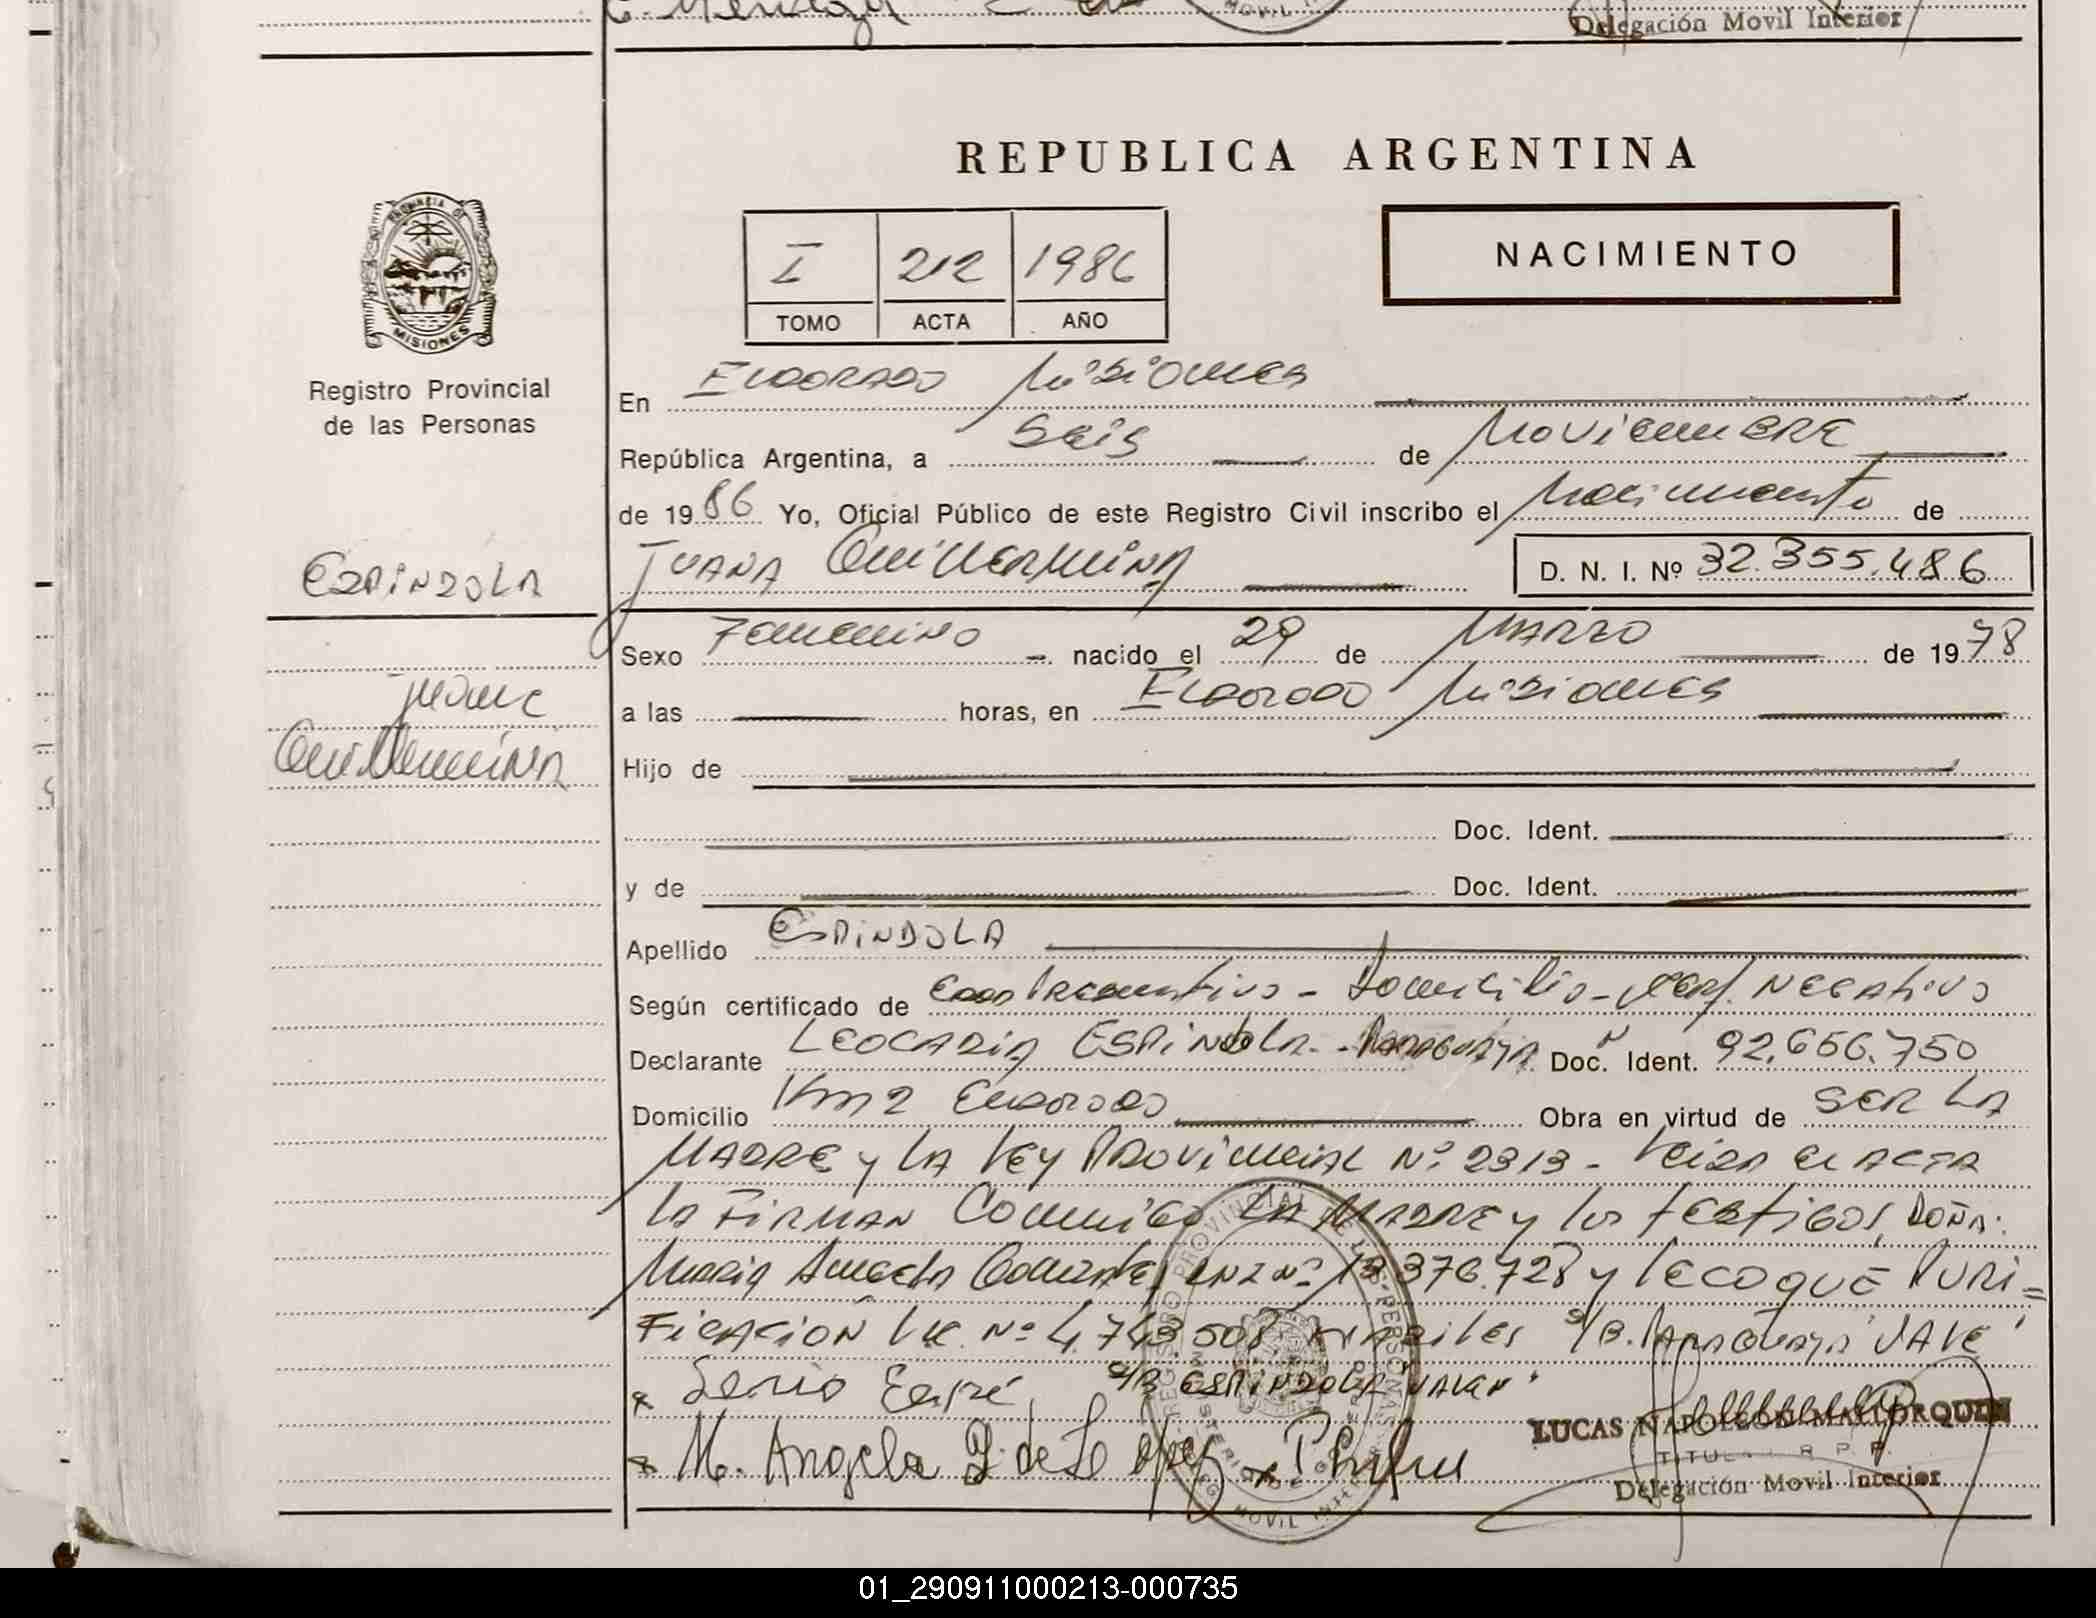 Delegación Movil Interior
REPUBLICA ARGENTINA
NACIMIENTO
I 212 1986
TOMO ACTA AÑO
PROVINCIA DE
MISIONES
Registro Provincial
de las Personas
ESPINDOLA
Juana
Guillermina
En ELDORADO Misiones
República Argentina, a Seis de Noviembre
de 1986 Yo, Oficial Público de este Registro Civil inscribo el Nacimiento de
JUANA Guillermina D. N. I. Nº 32.355.486
Sexo Femenino nacido el 29 de MARZO de 1978
a las horas, en Eldorado Misiones
Hijo de
Doc. Ident.
y de Doc. Ident.
Apellido ESPINDOLA
Según certificado de Domicilio - Cert. NEGATIVO
Declarante LEOCADIA ESPINDOLA - PARAGUAYA Doc. Ident. 92.656.750
Domicilio Km 2 Eldorado Obra en virtud de SER LA
MADRE y LA LEY PROVINCIAL Nº 2313 - Leida el ACTA
LA FIRMAN Conmigo LA MADRE y los testigos, DOÑA:
Maria Angela Gonzalez DNI Nº 13.376.728 y Lecoque PURI=
FICACION L.C. Nº 4.743.508 HABILES S/B. PARAGUAYA "VALE"
S/B ESPINDOLA "VALEN"
x M. Angela G. de Lopez
LUCAS NAPOLEON MALLORQUIN
TITULAR R. P. P.
Delegación Movil Interior
01_290911000213-000735